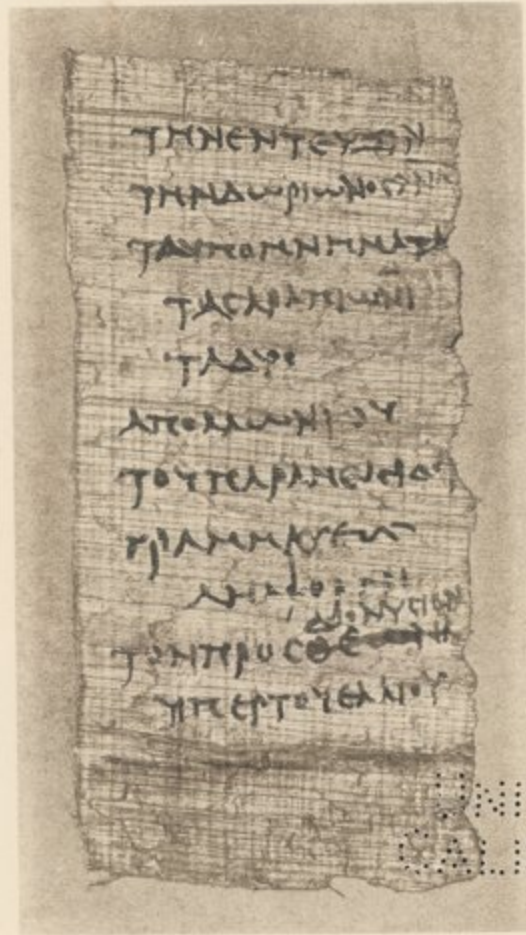 ΤΗΝΕΝΤΕΥΞΙΝ
ΤΗΝΔΩΡΙΩΝΟΣ
ΤΑΥΠΟΜΝΗΜΑΤΑ
ΤΑΣΑΡΑΠΙΩΝΙ
ΤΑΔΥΟ
ΑΠΟΛΛΩΝΙΟΥ
ΤΟΥΠΕΑΡΑΜΕΙΘΟΥ
ΓΡΑΜΜΑΤΕΩΣ
ΔΙΟΝΥΣΙΟΝ
ΤΟΝΠΡΟΣΘΕ
ΥΠΕΡΤΟΥΕΛΑΙΟΥ
UNI
CALI